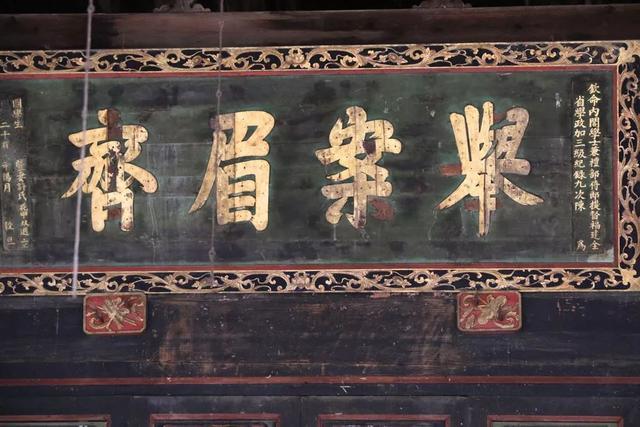 欽命內閣學士兼禮部侍郎提督福建全
省學政加三級紀錄九次陳　為
舉案眉齊